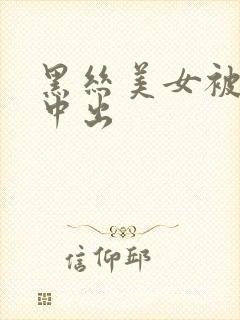 黑丝美女被
中出
信仰邱